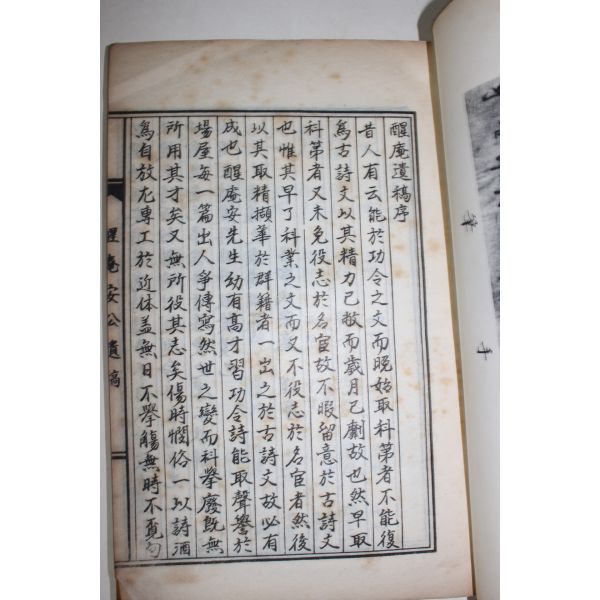 醒庵遺稿序
昔人有云能於功令之文而晚始取科第者不能復
為古詩文以其精力已敝而歲月已劇故也然早取
科第者又未免役志於名宦故不暇留意於古詩文
也惟其早了科業之文而又不役志於名宦者然後
以其取精擷華於群籍者一出之於古詩文故必有
成也醒庵安先生幼有高才習功令詩能取聲譽於
場屋每一篇出人爭傳寫然世之變而科擧廢旣無
所用其才矣又無所役其志矣傷時憫俗一以詩酒
為自放尤專工於近体盖無日不擧觴無時不覓句
醒庵安公遺稿